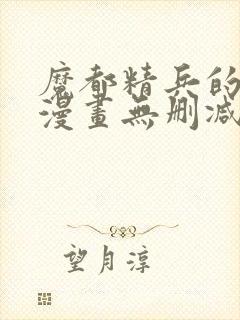 魔都精兵的
漫畫無刪減
望月淳